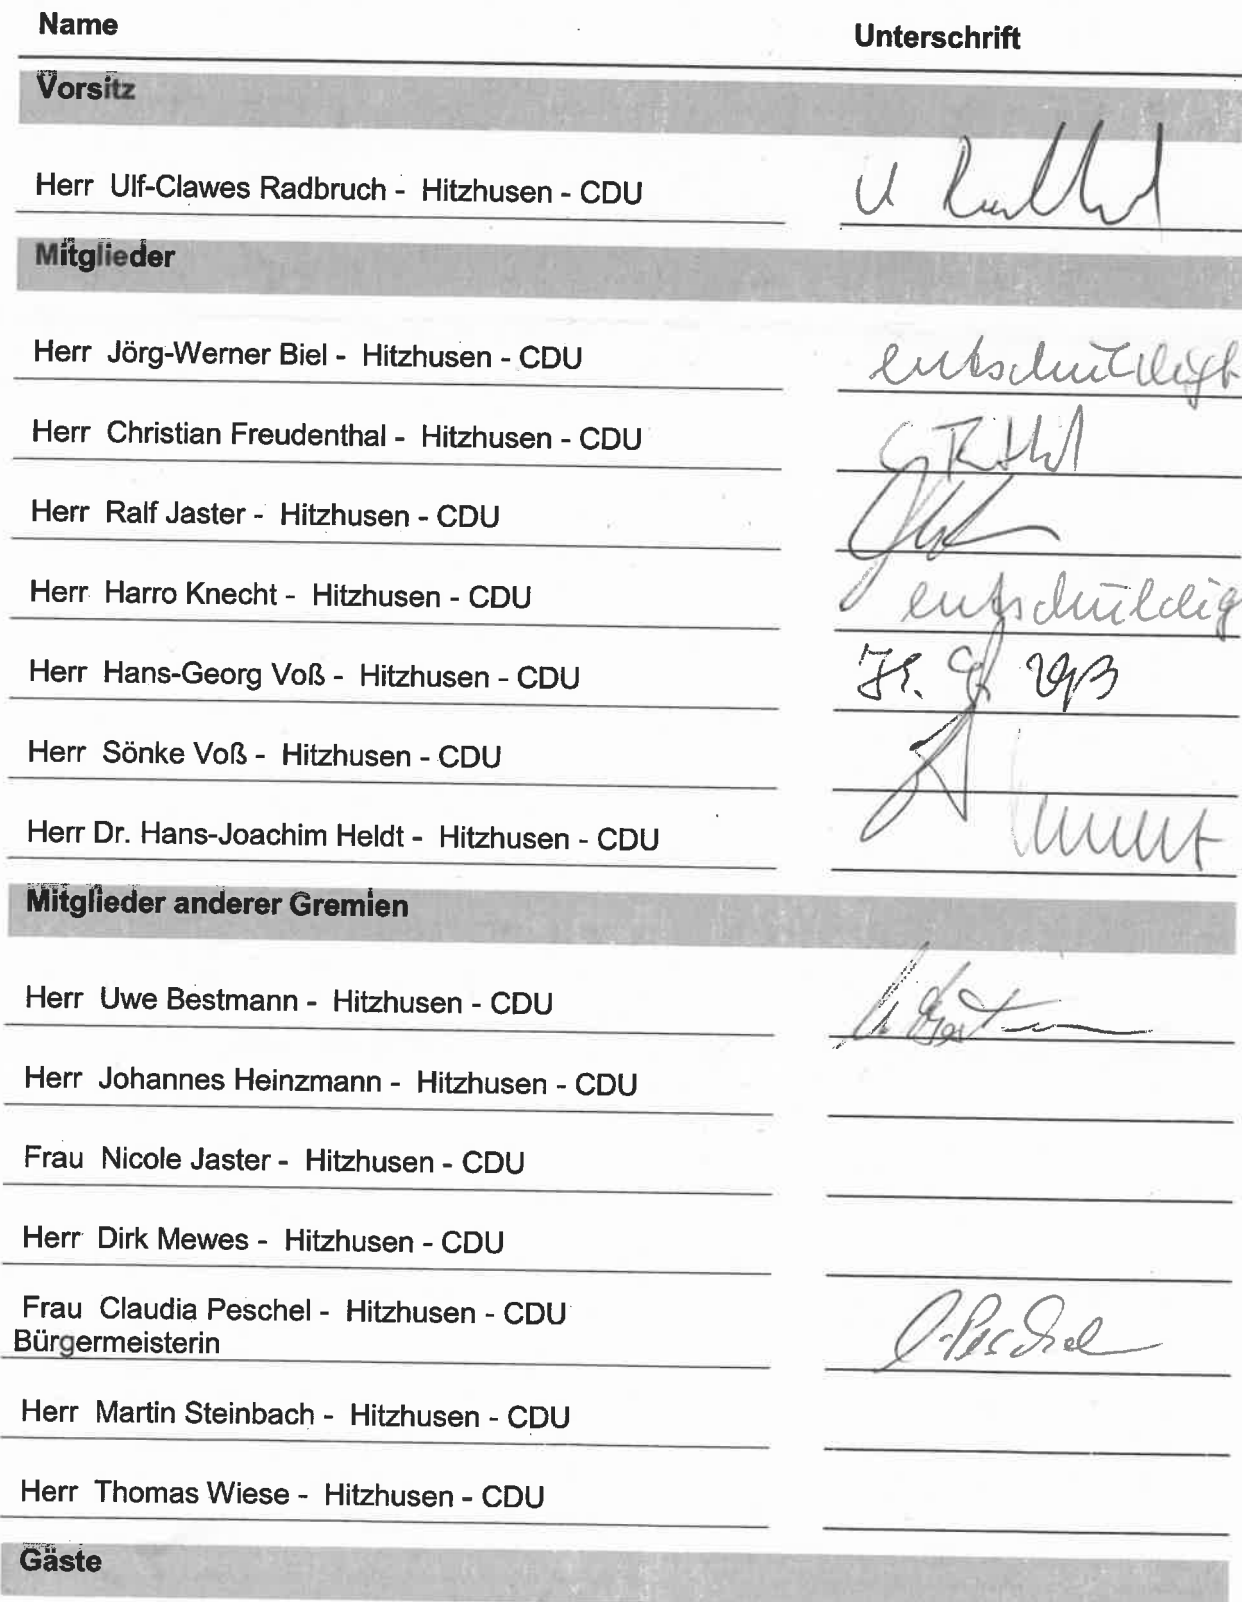 Name Unterschrift
Vorsitz
Herr Ulf-Clawes Radbruch - Hitzhusen - CDU
Mitglieder
Herr Jörg-Werner Biel - Hitzhusen - CDU entschuldigt
Herr Christian Freudenthal - Hitzhusen - CDU
Herr Ralf Jaster - Hitzhusen - CDU
Herr Harro Knecht - Hitzhusen - CDU entschuldig
Herr Hans-Georg Voß - Hitzhusen - CDU H. G. Voß
Herr Sönke Voß - Hitzhusen - CDU
Herr Dr. Hans-Joachim Heldt - Hitzhusen - CDU
Mitglieder anderer Gremien
Herr Uwe Bestmann - Hitzhusen - CDU
Herr Johannes Heinzmann - Hitzhusen - CDU
Frau Nicole Jaster - Hitzhusen - CDU
Herr Dirk Mewes - Hitzhusen - CDU
Frau Claudia Peschel - Hitzhusen - CDU C. Peschel
Bürgermeisterin
Herr Martin Steinbach - Hitzhusen - CDU
Herr Thomas Wiese - Hitzhusen - CDU
Gäste